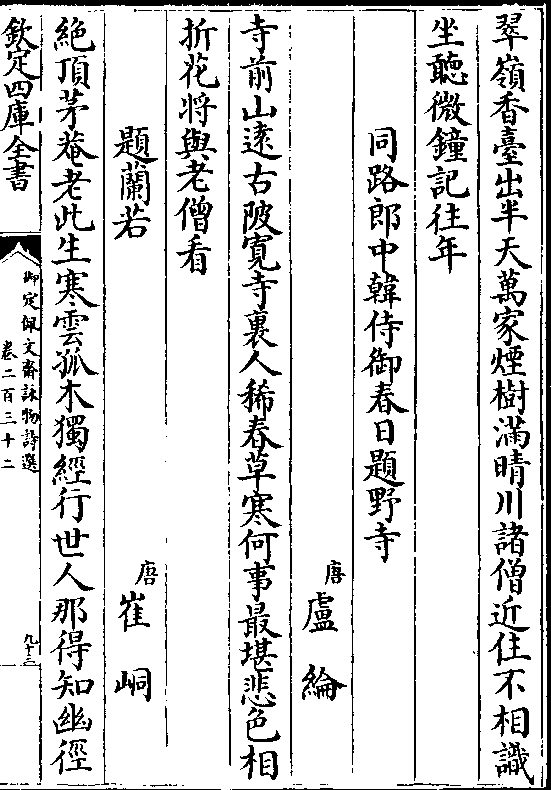 翠嶺香臺出半天萬家煙樹滿晴川諸僧近住不相識
坐聽微鐘記往年
同路郎中韓侍御春日題野寺
唐盧綸
寺前山遠古陂寬寺裏人稀春草寒何事最堪悲色相
折花將與老僧看
題蘭若
唐崔峒
絶頂茅菴老此生寒雲孤木獨經行世人那得知幽徑
欽定四庫全書
御定佩文齋詠物詩選
卷二百三十二
九十三